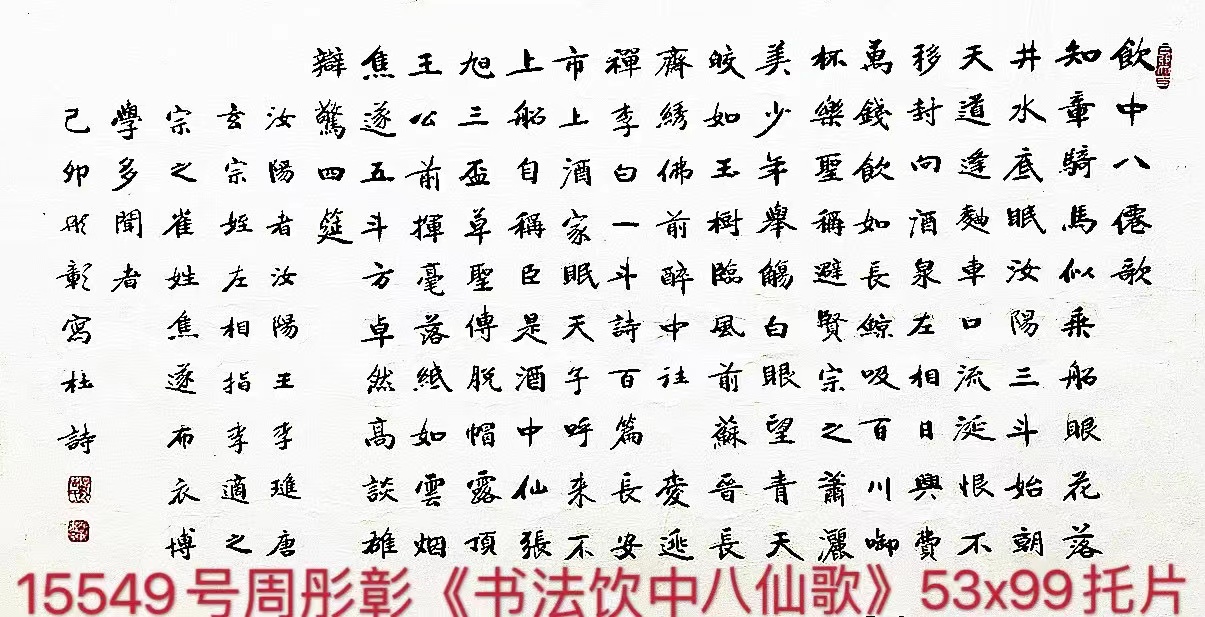 飲中八僊歌
知章騎馬似乘船眼花落
井水底眠汝陽三斗始朝
天道逢麴車口流涎恨不
移封向酒泉左相日興費
萬錢飲如長鯨吸百川啣
杯樂聖稱避賢宗之蕭灑
美少年舉觴白眼望青天
皎如玉樹臨風前蘇晉長
齊綉佛前醉中往愛逃
禪李白一斗詩百篇長安
市上酒家眠天子呼來不
上船自稱臣是酒中仙張
旭三盃草聖傳脫帽露頂
王公前揮毫落紙如雲烟
焦遂五斗方卓然高談雄
辯驚四筵
汝陽者汝陽王李璡唐
玄宗姪左相指李適之
宗之崔姓焦遂布衣博
學多聞者
己卯彤彰寫杜詩
15549号周彤彰《书法饮中八仙歌》53x99托片